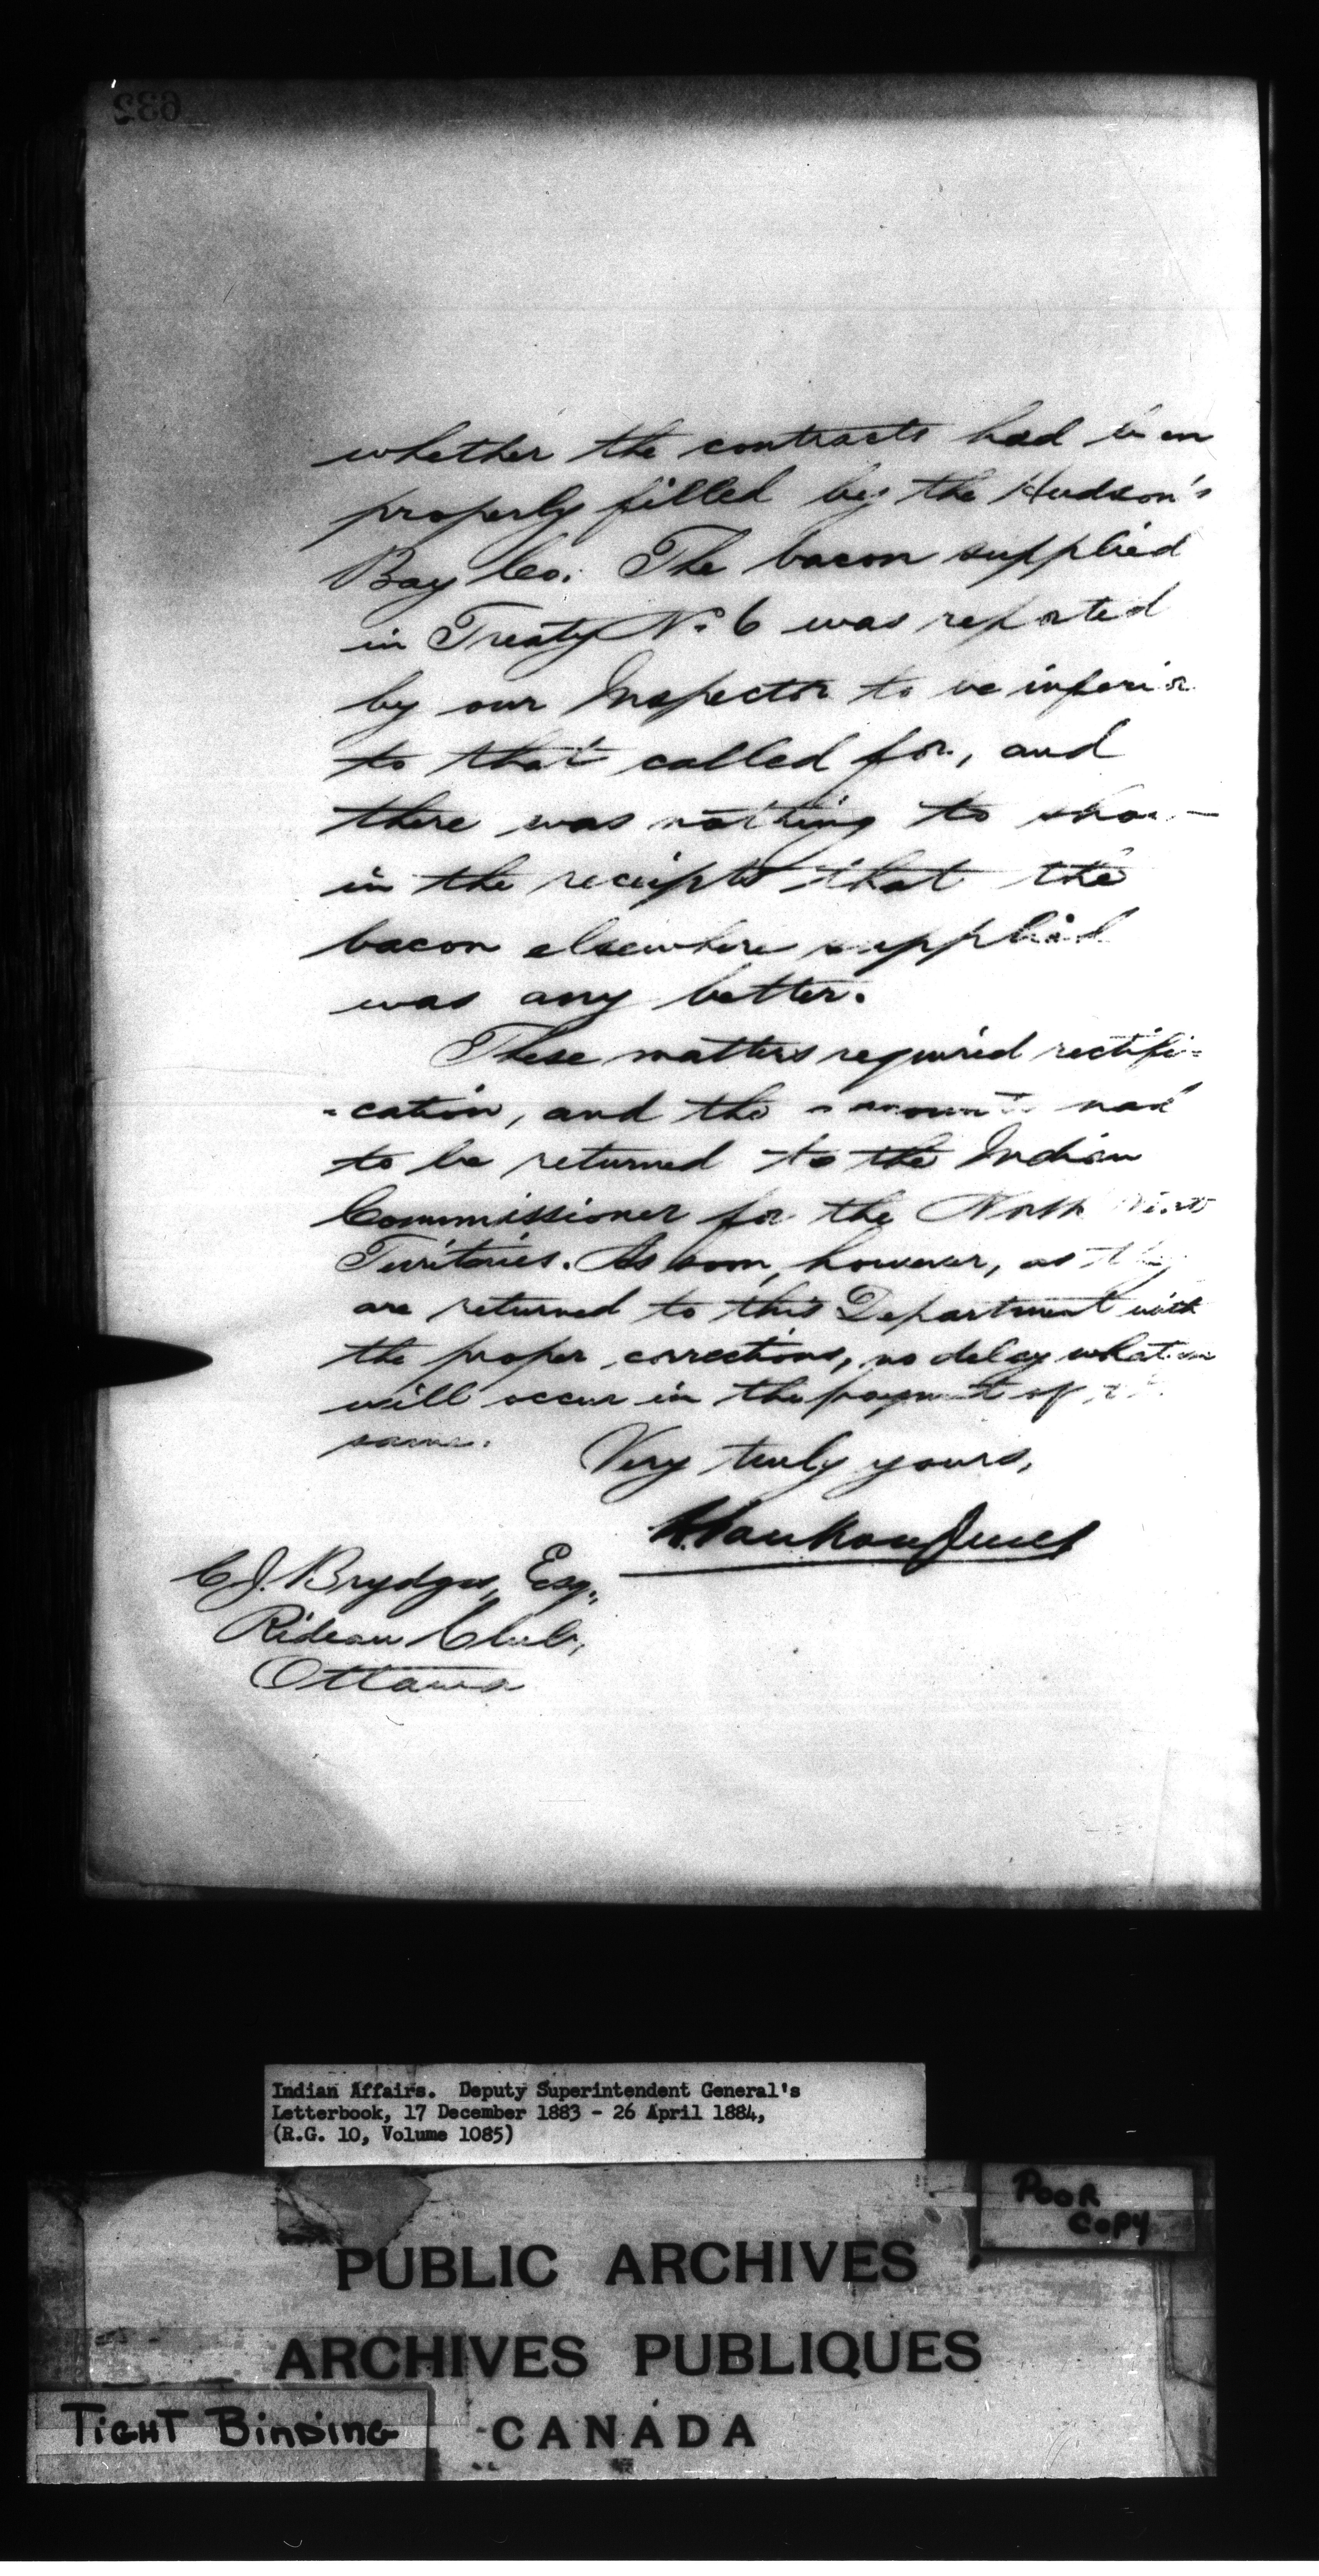 632
whether the contracts had been
properly filled by the Hudson's
Bay Co. The bacon supplied
in Treaty No. 6 was reported
by our Inspector to be inferior
to that called for, and
there was nothing to show
in the receipts that the
bacon elsewhere supplied
was any better.
These matters required rectifi=
=cation, and the accounts had
to be returned to the Indian
Commissioner for the North West
Territories. As soon, however, as they
are returned to this Department with
the proper corrections, no delay whatever
will occur in the payment of the
same.
Very truly yours,
L. VanKoughnet
C. J. Brydges, Esq.,
Rideau Club,
Ottawa
Indian Affairs. Deputy Superintendent General's
Letterbook, 17 December 1883 - 26 April 1884,
(R.G. 10, Volume 1085)
POOR
COPY
PUBLIC ARCHIVES
ARCHIVES PUBLIQUES
CANADA
TIGHT BINDING